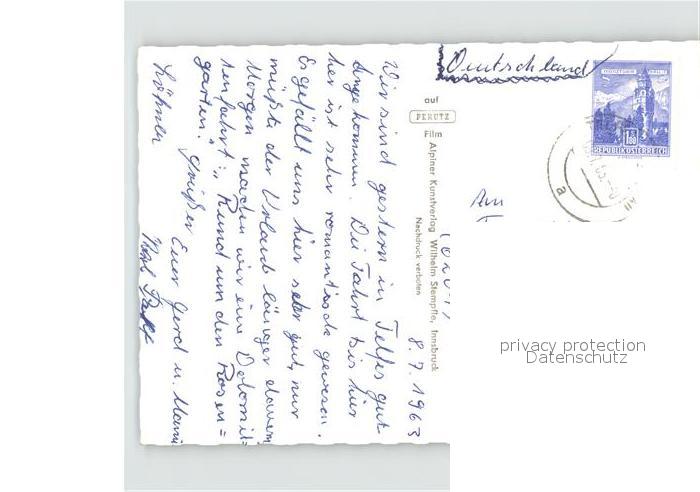 Deutschland
8.7.1963
Wir sind gestern in Telfes gut
angekommen. Die Fahrt bis hier
her ist sehr romantisch gewesen.
Es gefällt uns hier sehr gut, nur
müßte der Urlaub länger dauern
Morgen machen wir eine Dolomit=
enfahrt „Rund um den Rosen=
garten". Grüßen Euer Gerd u.
auf
PERUTZ
Film
Alpiner Kunstverlag Wilhelm Stempfle, Innsbruck
Nachdruck verboten
S 1.80
REPUBLIK ÖSTERREICH
a
An
privacy protection
Datenschutz